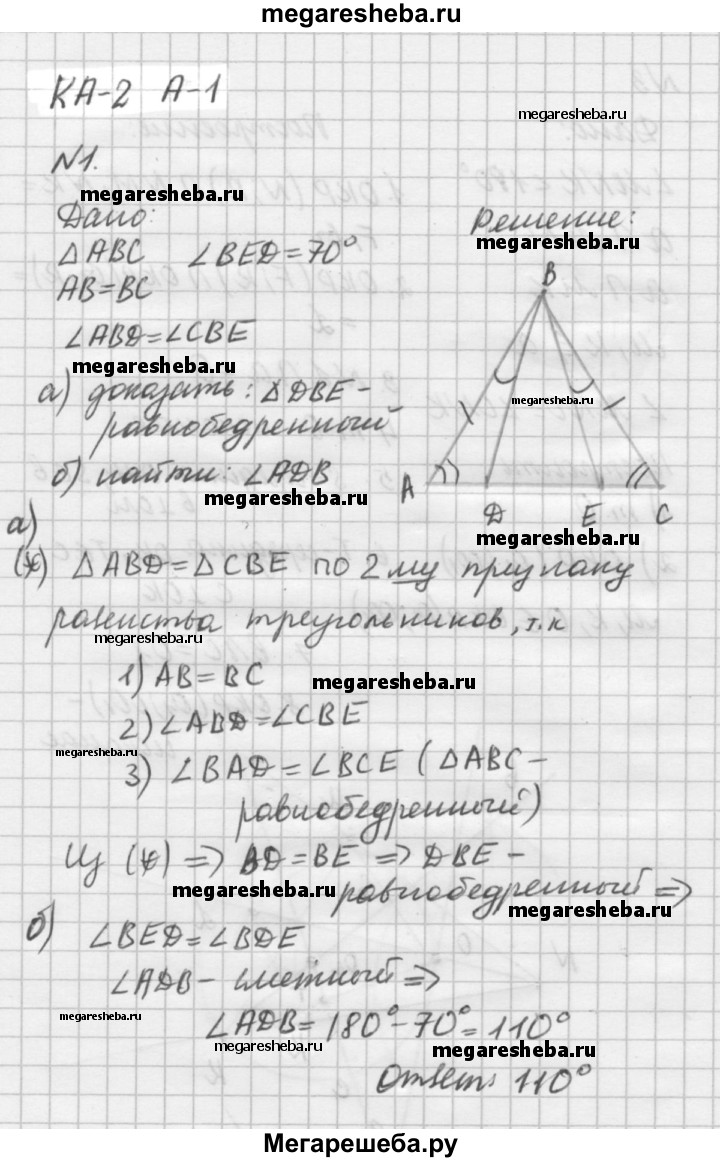 megaresheba.ru
КА-2 А-1
megaresheba.ru
N1.
megaresheba.ru
Дано:
Решение:
△ABC ∠BED=70°
megaresheba.ru
AB=BC
B
∠ABD=∠CBE
megaresheba.ru
а) доказать: △DBE-
megaresheba.ru
равнобедренный
б) найти: ∠ADB
megaresheba.ru
A D E C
а)
megaresheba.ru
(*) △ABD=△CBE по 2му признаку
равенства треугольников, т.к
megaresheba.ru
1) AB=BC
megaresheba.ru
2) ∠ABD=∠CBE
megaresheba.ru
3) ∠BAD=∠BCE (△ABC-
равнобедренный)
Из (*) => BD=BE => DBE-
megaresheba.ru
равнобедренный =>
megaresheba.ru
б) ∠BED=∠BDE
∠ADB- смежный =>
megaresheba.ru
∠ADB=180°-70°=110°
megaresheba.ru
megaresheba.ru
Ответ: 110°
Мегарешеба.ру